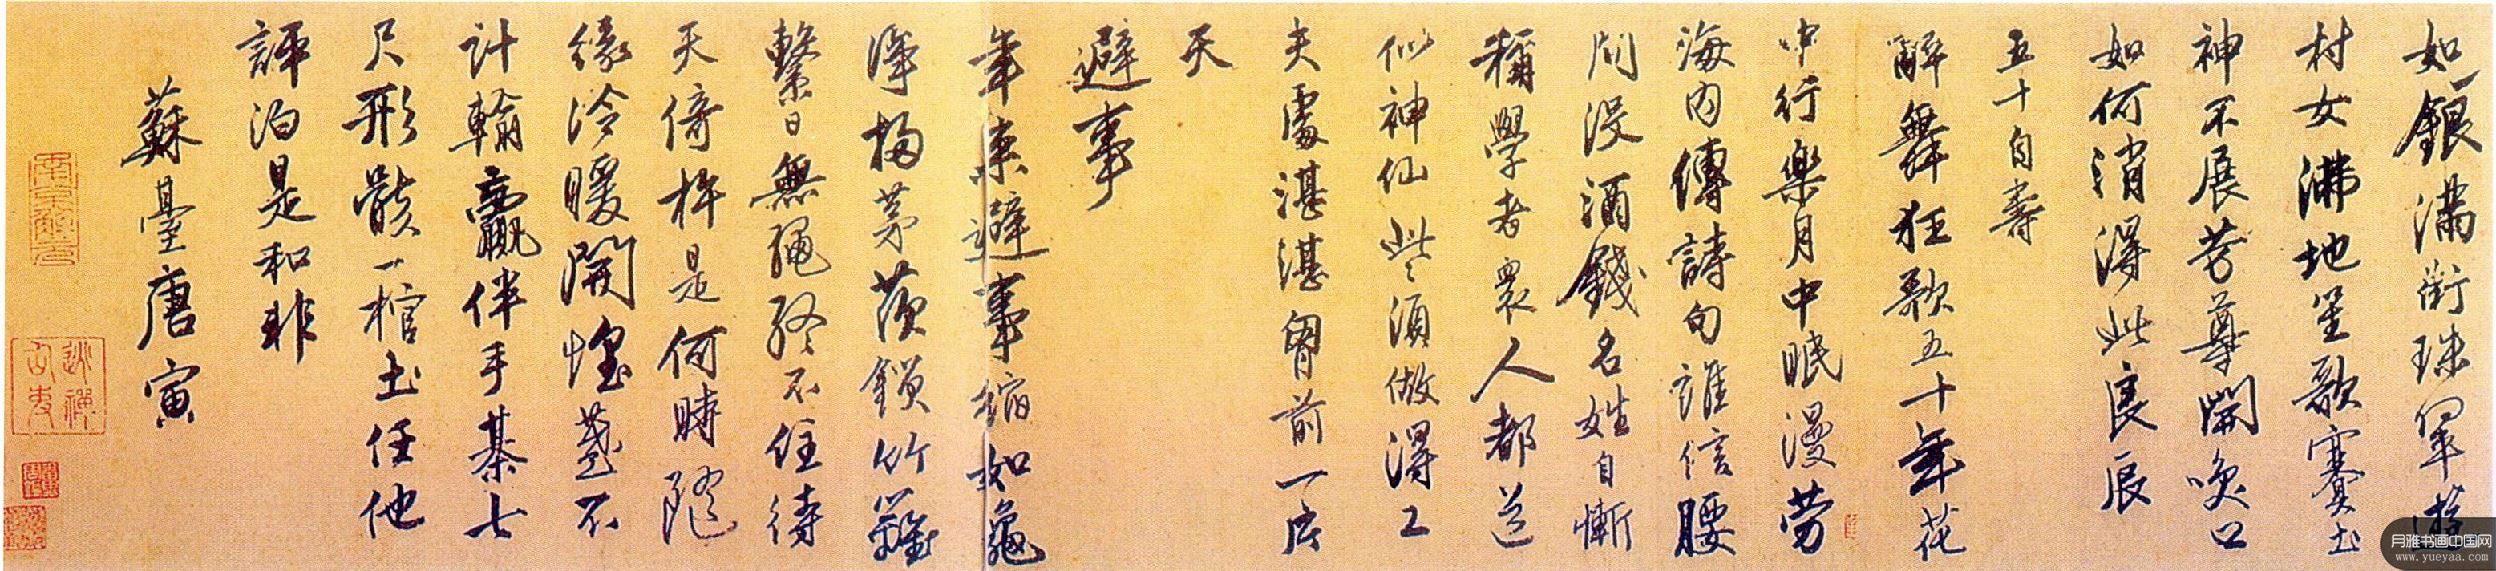 如銀滿街珠翠遊
村女沸地笙歌賽土
神不展芳尊開喚口
如何消得此良辰
五十自壽
醉舞狂歌五十年花
中行樂月中眠漫勞
海內傳詩句誰信腰
間沒酒錢名姓自慚
稱學者眾人都道
似神仙些須做得工
夫處湛湛胷前一片
天
避事
年來避事縮如龜
淨掃茅茨鎖竹籬
繫日無繩終不住待
天倚杵是何時隨
緣冷暖開懷盞不
計輸贏伴手棊七
尺形骸一棺土任他
評泊是和非
蘇臺唐寅
南京解元
逃禪仙吏
月雅书画中国网
www.yueyaa.com